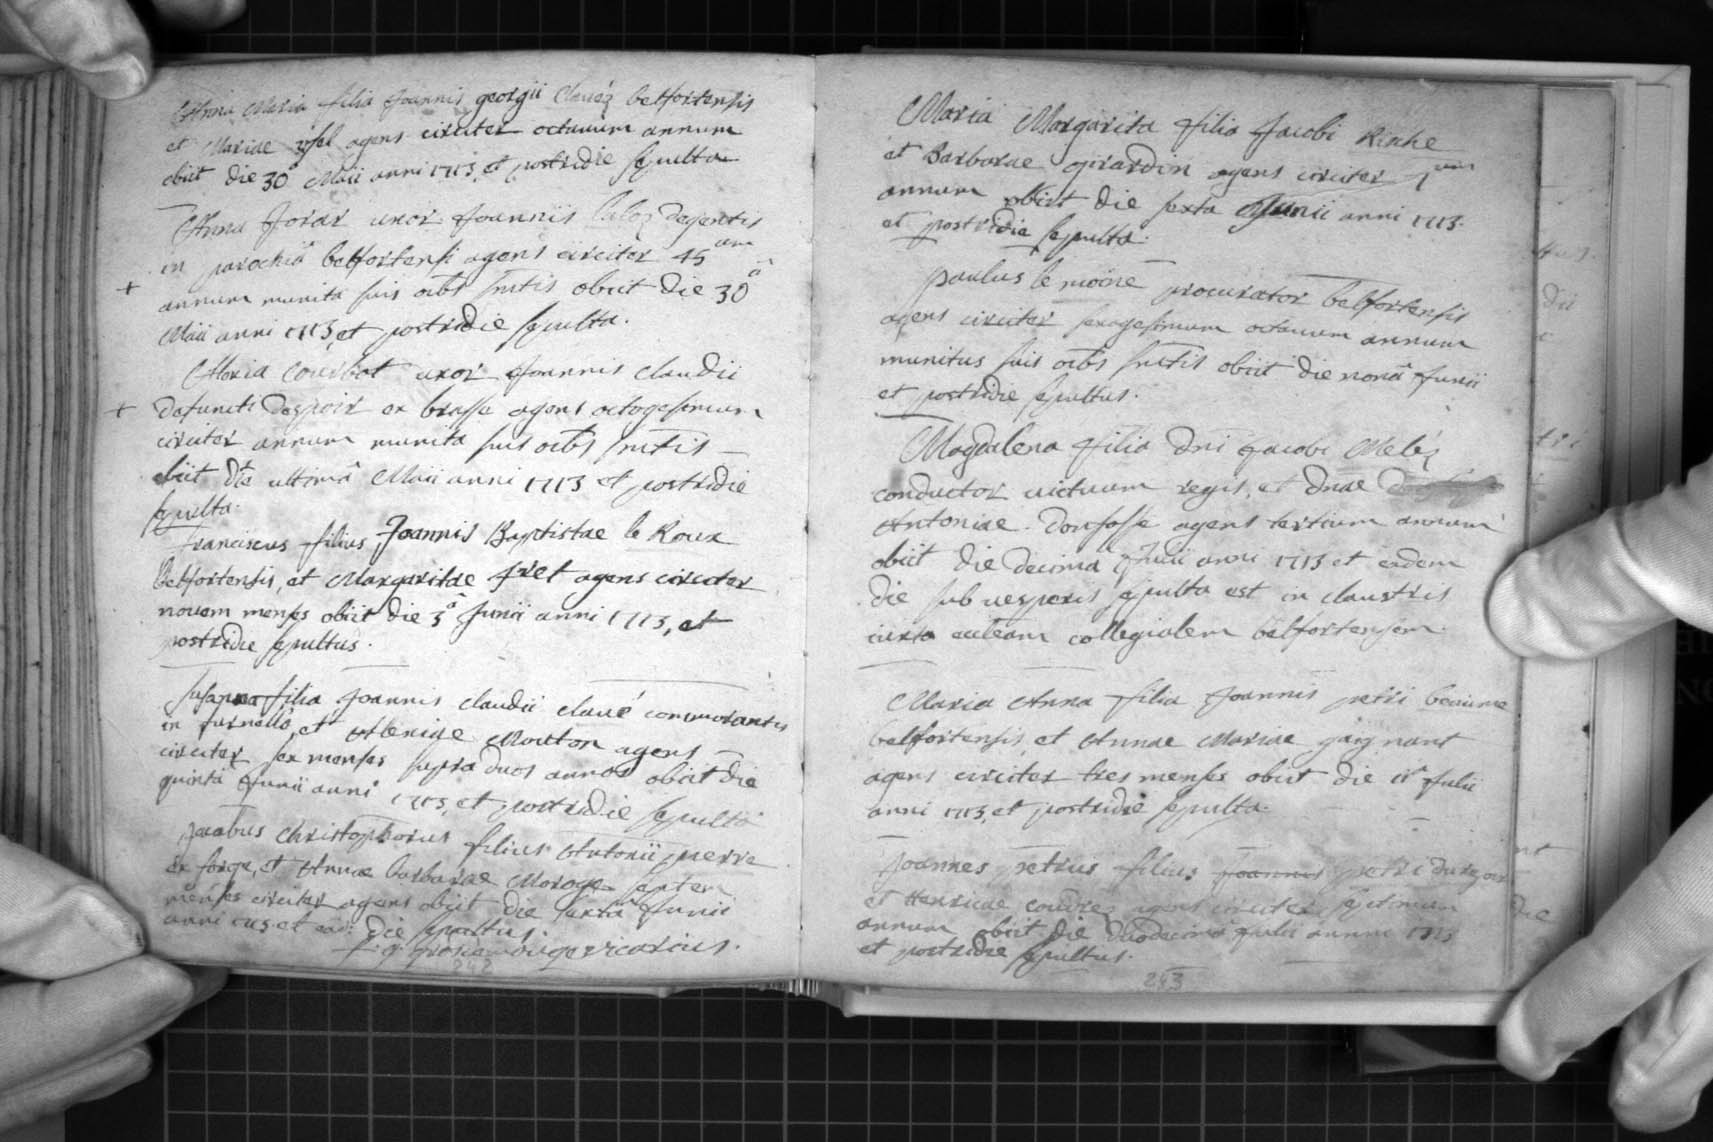 Anna Maria filia Joannis georgii Clavéz belfortensis
et Mariae agens circiter octavum annum
obiit die 30â Maii anni 1713, et postridie sepulta
Anna Jorar uxor Joannis degentis
in parochiâ belfortensi agens circiter 45um
+ annum munita suis oibs sntis obiit die 30â
Maii anni 1713, et postridie sepulta.
Maria Courbot uxor Joannis Claudii
+ defuncti Despoir ex brasse agens octogesimum
circiter annum munita suis oibs sntis
obiit die ultimâ Maii anni 1713 et postridie
sepulta.
franciscus filius Joannis Baptistae le Roux
belfortensis, et Margaritae fret agens circiter
novem menses obiit die 3â Junii anni 1713, et
postridie sepultus.
Susanna filia Joannis Claudii clavé commorantis
in furnello, et Mouton agens
circiter sex menses supra duos annos obiit die
quintâ Junii anni 1713, et postridie sepulta
Jacobus Christophorus filius Antonii pierre
ex forge, et Annae barbarae Moroge septem
menses circiter agens obiit die sextâ Junii
anni 1713 et eâd. die sepultus.
vicarius.
242
Maria Margarita filia Jacobi
et Barbarae girardin agens circiter 1um
annum obiit die sexta Junii anni 1713.
et postridie sepulta.
paulus le moine procurator belfortensis
agens circiter sexagesimum octavum annum
munitus suis oibs sntis obiit die nonâ Junii
et postridie sepultus.
Magdalena filia Dni Jacobi Meléz
conductor victuum regis, et Dnae
Antoniae Donsasse agens tertium annum
obiit die decima Junii anni 1713 et eadem
die sub vesperis sepulta est in claustris
iuxta collegialem belfortensem.
Maria Anna filia Joannis petri beaume
belfortensis, et Annae Mariae gaignant
agens circiter tres menses obiit die 11â Julii
anni 1713, et postridie sepulta.
Joannes petrus filius Joannis petri
et Henricae agens circiter septimum
annum obiit die duodecimâ Julii anni 1713
et postridie sepultus.
243